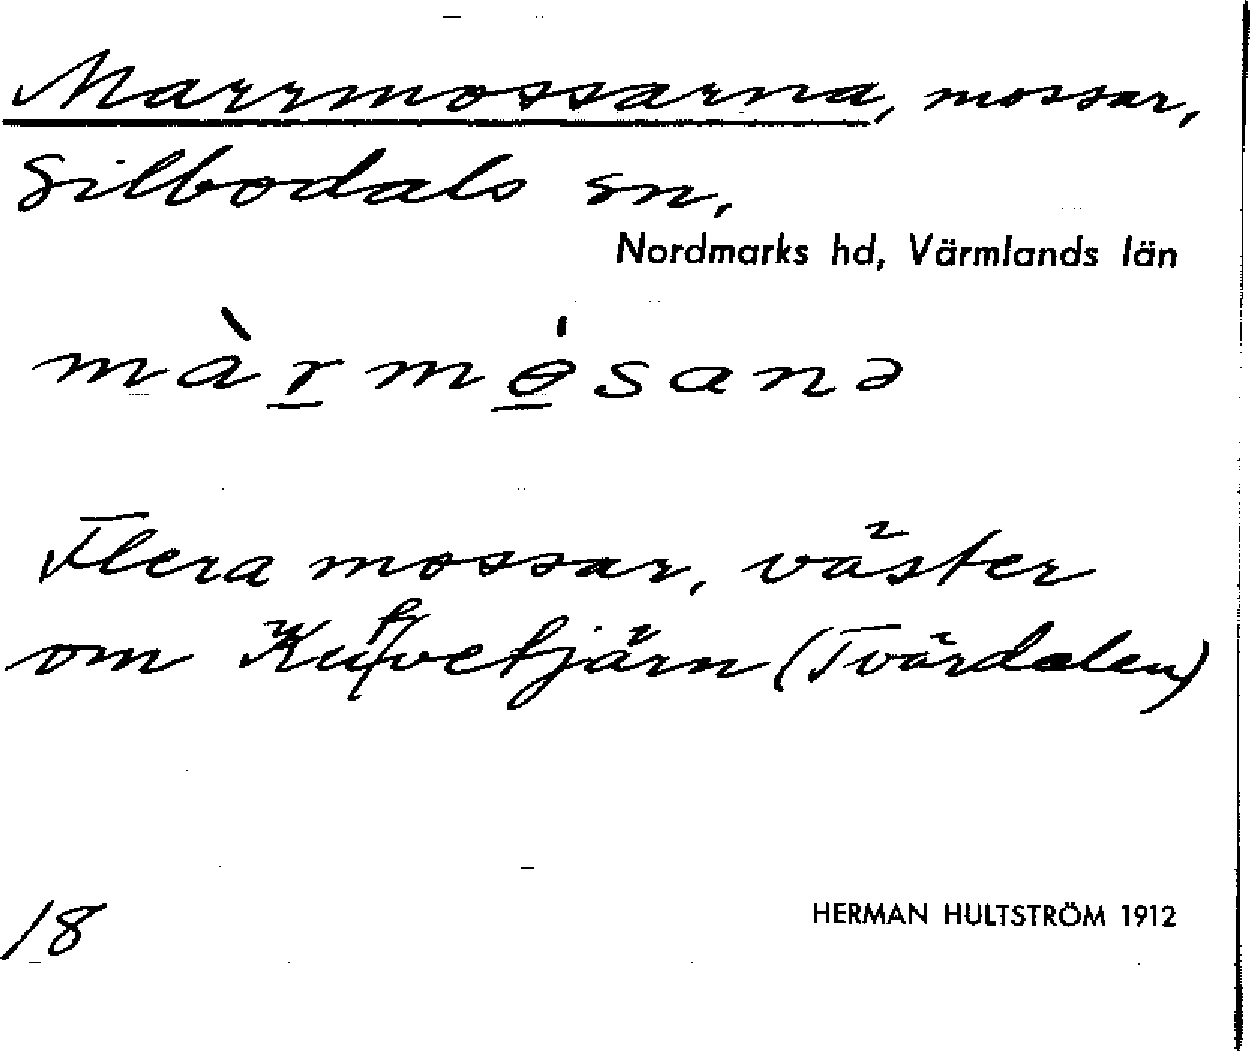 Marrmossarna, mossar,
Silbodals sn,
Nordmarks hd, Värmlands län
màr̲mɵ̲́sanə
Flera mossar, väster
om (Tvärdalen)
18
HERMAN HULTSTRÖM 1912